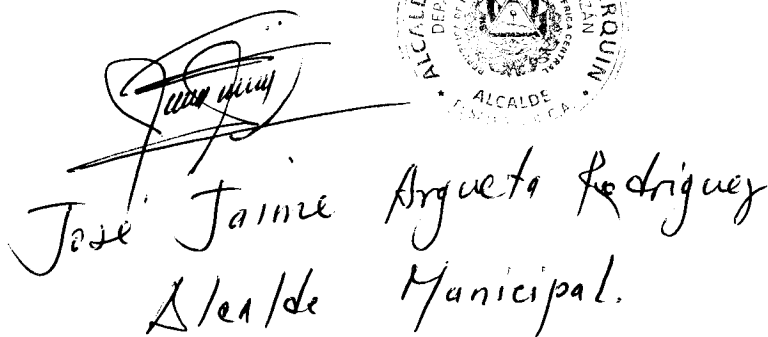 ALCALDE
José Jaime Argueta Rodriguez
Alcalde Municipal.